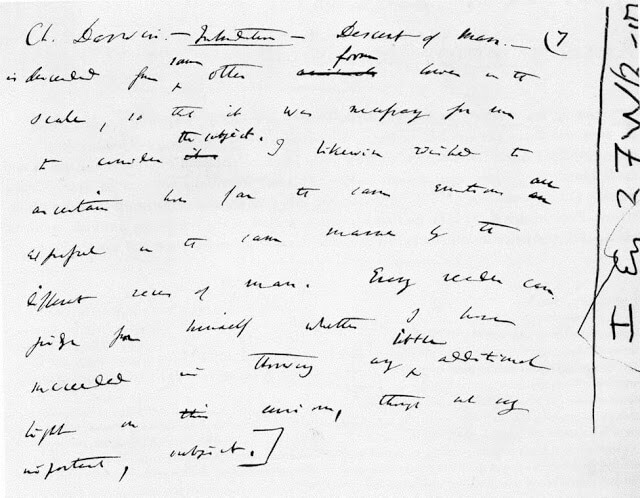 Ch. Darwin. — Introduction — Descent of Man. — (7
is descended from some other animals form lower in the
scale, so that it was necessary for me
to consider it the subject. I likewise wished to
ascertain how far the same emotions are
expressed in the same manner by the
different races of man. Every reader can
judge for himself whether I have
succeeded in throwing any little additional
light on this curious, though not very
important, subject.]